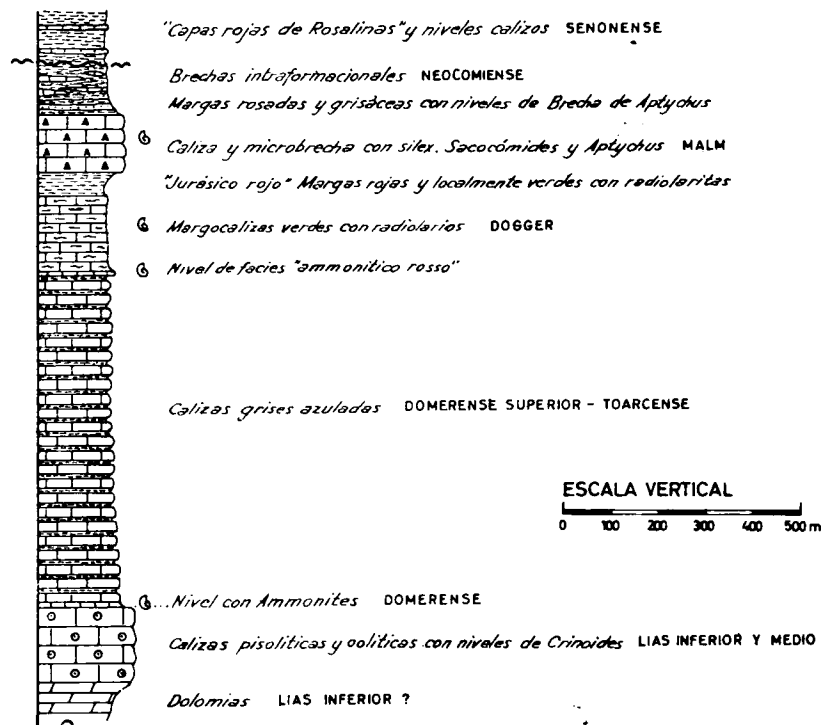 "Capas rojas de Rosalinas" y niveles calizos SENONENSE
Brechas intraformacionales NEOCOMIENSE
Margas rosadas y grisáceas con niveles de Brecha de Aptychus
Caliza y microbrecha con silex. Sacocómides y Aptychus MALM
"Jurásico rojo" Margas rojas y localmente verdes con radiolaritas
Margocalizas verdes con radiolarios DOGGER
Nivel de facies "ammonitico rosso"
Calizas grises azuladas DOMERENSE SUPERIOR - TOARCENSE
ESCALA VERTICAL
0 100 200 300 400 500 m
...Nivel con Ammonites DOMERENSE
Calizas pisolíticas y oolíticas con niveles de Crinoides LIAS INFERIOR Y MEDIO
Dolomias LIAS INFERIOR ?